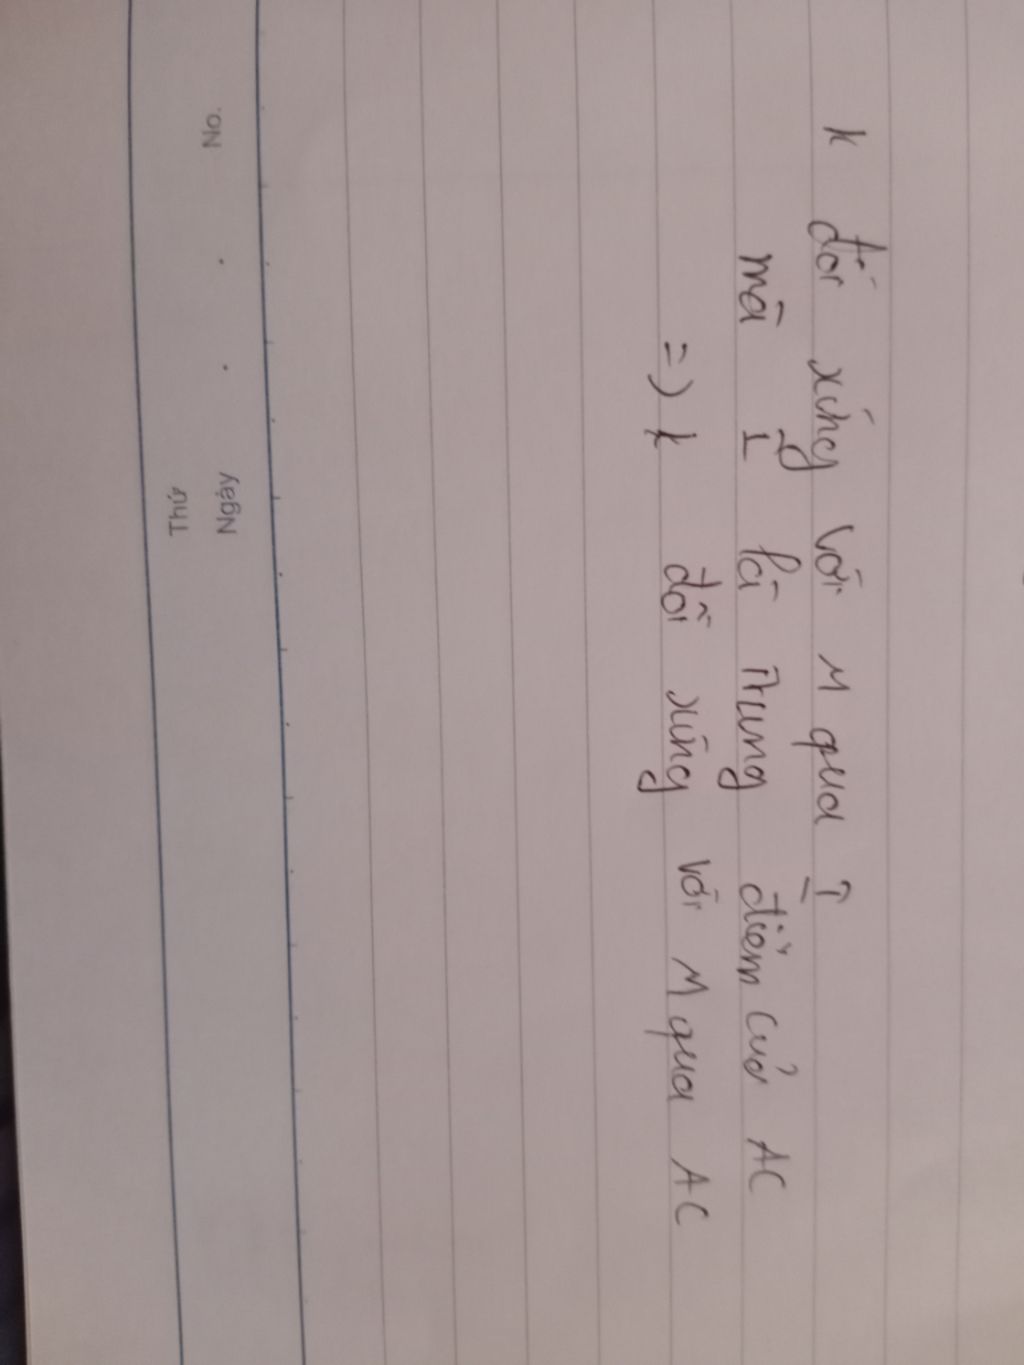 K đối xứng với M qua I
mà I là trung điểm của AC
=> K đối xứng với M qua AC
Thứ
Ngày
No.